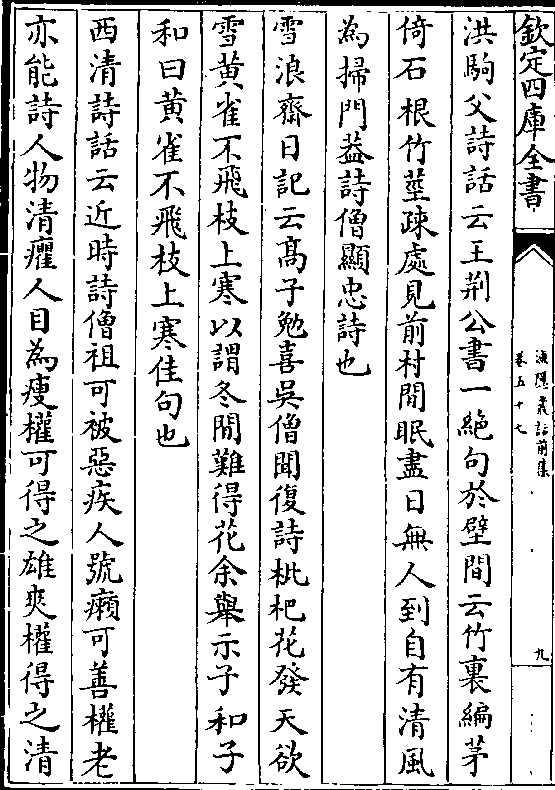 欽定四庫全書
漁隱叢話前集
卷五十七
九
洪駒父詩話云王荆公書一絶句於壁間云竹裏編茅
倚石根竹莖疎處見前村閒眠盡日無人到自有清風
為掃門葢詩僧顯忠詩也
雪浪齋日記云髙子勉喜吳僧聞復詩枇杷花發天欲
雪黄雀不飛枝上寒以謂冬間難得花余舉示子和子
和曰黄雀不飛枝上寒佳句也
西清詩話云近時詩僧祖可被惡疾人號癩可善權老
亦能詩人物清癯人目為瘦權可得之雄爽權得之清